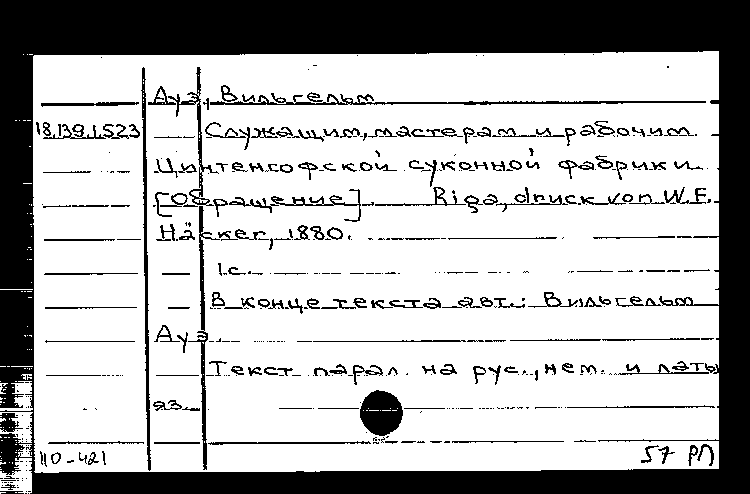 Ауэ, Вильгельм
18.139.1.523 Служащим, мастерам и рабочим
Цинтенгофской суконной фабрики
[Обращение]. Riga, druck von W.F.
Häcker, 1880.
1с.
В конце текста авт.: Вильгельм
Ауэ.
Текст парал. на рус., нем. и латы
яз.
110-421 57 РП